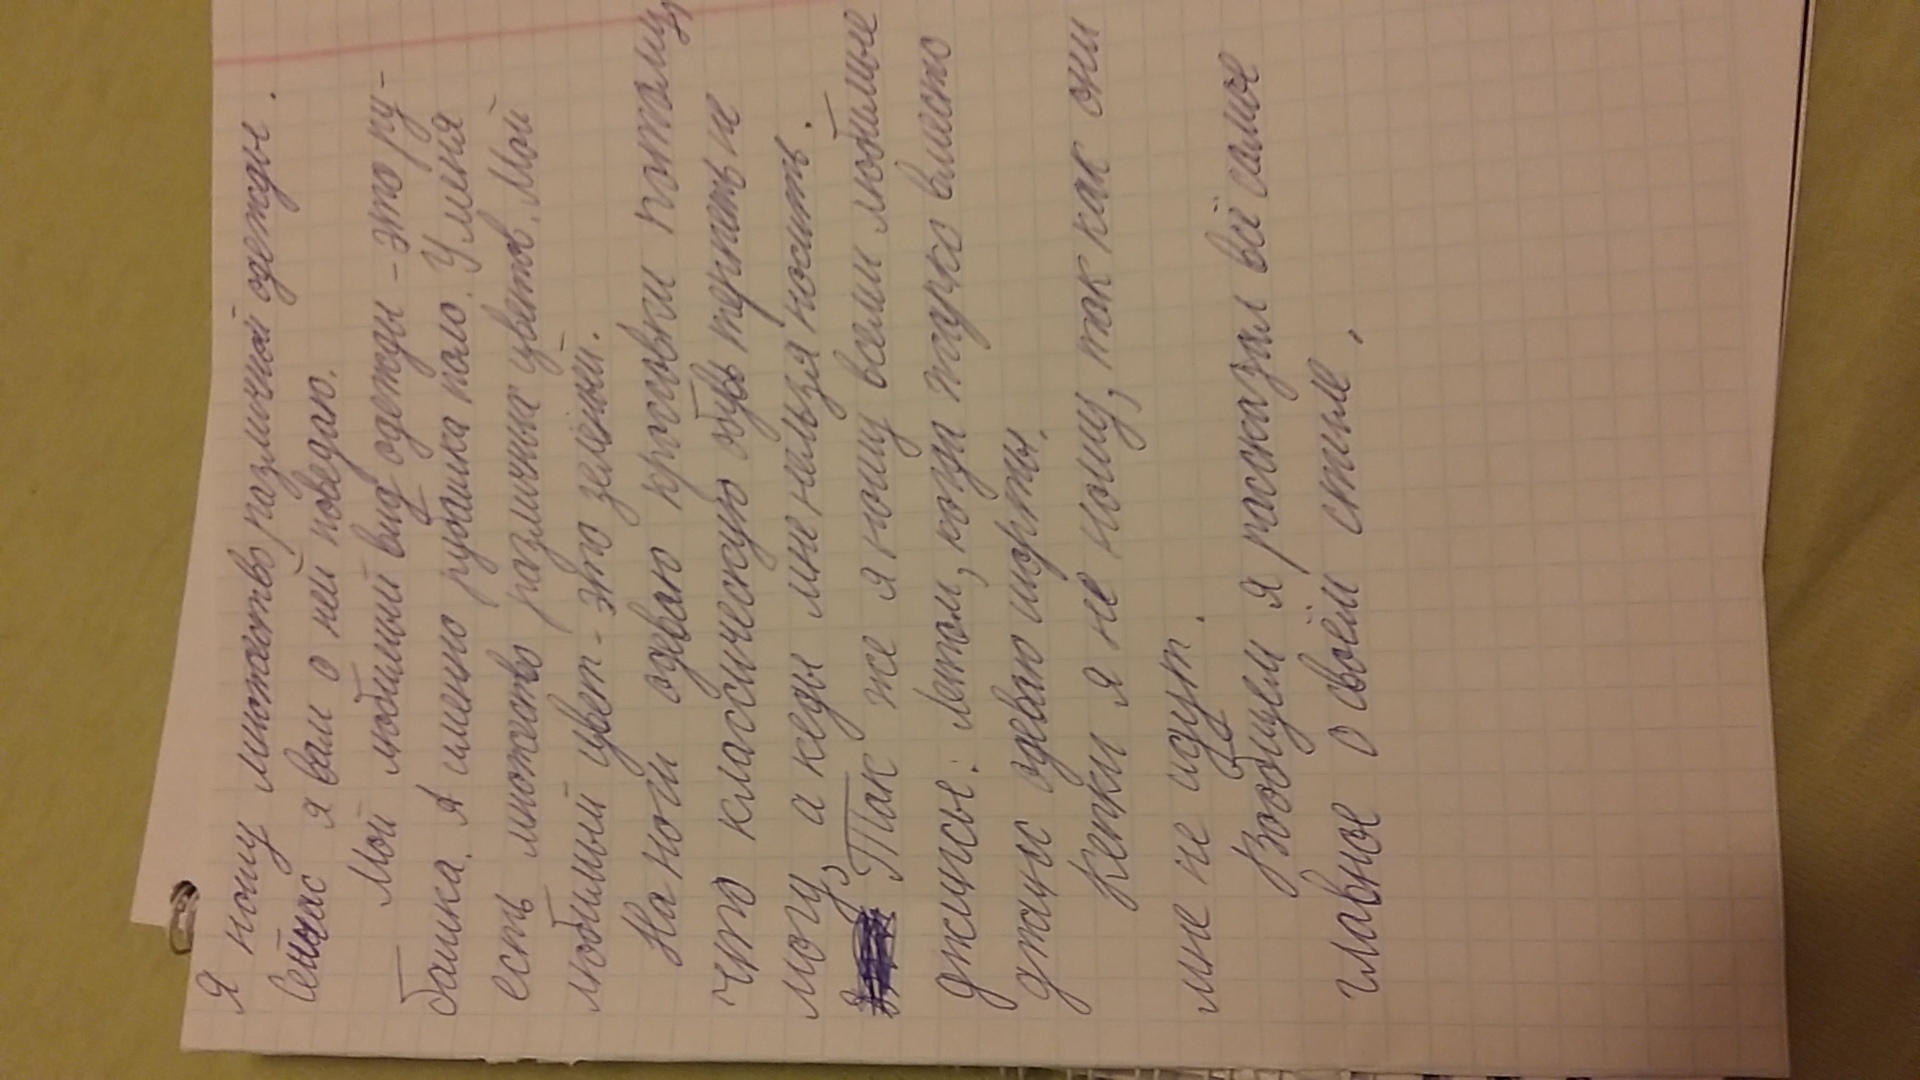 Я ношу множество различной одежды.
Сейчас я вам о ней поведаю.
Мой любимый вид одежды - это ру-
башка. А именно рубашка поло. У меня
есть множество различных цветов. Мой
любимый цвет - это зелёный.
На ноги одеваю кроссовки потому,
что классическую обувь терпеть не
могу, а кеды мне нельзя носить.
Так же я ношу всеми любимые
джинсы. Летом, когда жарко вместо
джинс одеваю шорты.
Кепки я не ношу, так как они
мне не идут.
Вообщем я рассказал всё самое
главное о своём стиле.